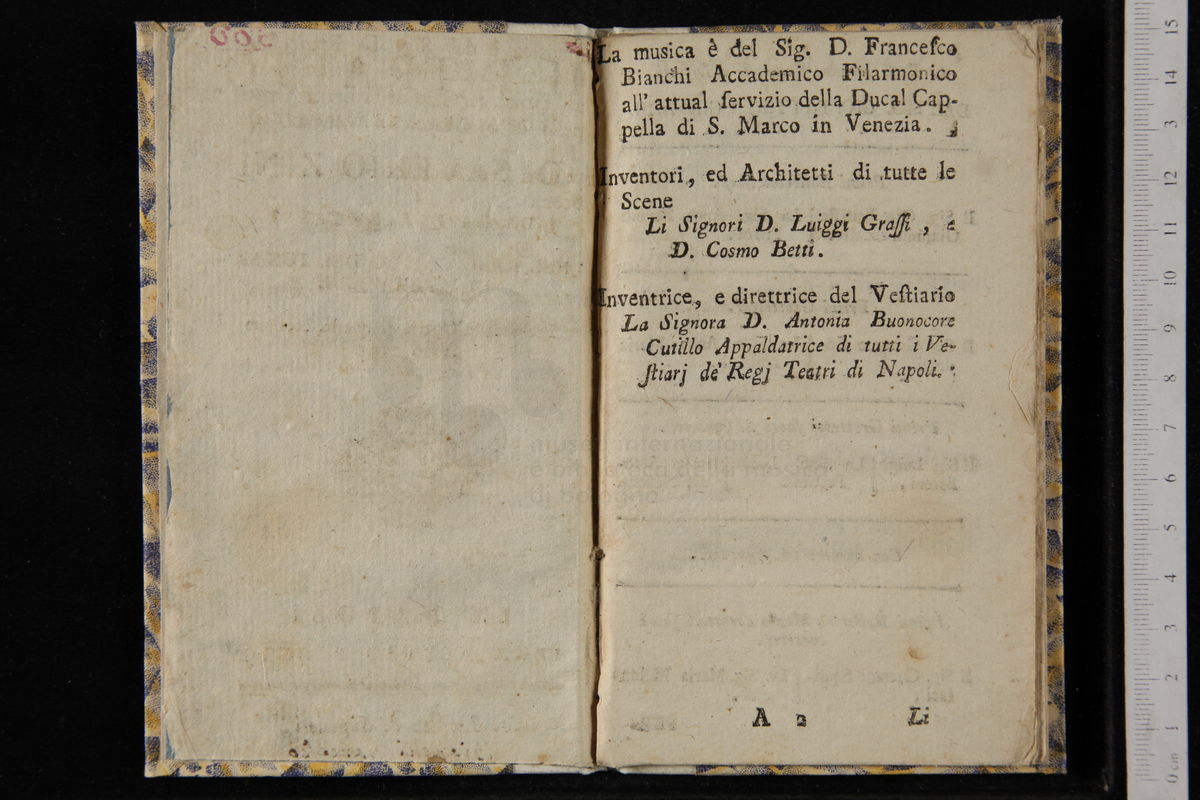 La musica è del Sig. D. Franceſco
Bianchi Accademico Filarmonico
all' attual ſervizio della Ducal Cap-
pella di S. Marco in Venezia.
Inventori, ed Architetti di tutte le
Scene
Li Signori D. Luiggi Graſſi, e
D. Cosmo Betti.
Inventrice, e direttrice del Veſtiario
La Signora D. Antonia Buonocore
Cutillo Appaldatrice di tutti i Ve-
ſtiarj de' Regj Teatri di Napoli.
museo internazionale
e biblioteca della musica
di bologna
A 2 Li
15
14
13
12
11
10
9
8
7
6
5
4
3
2
1
0 cm